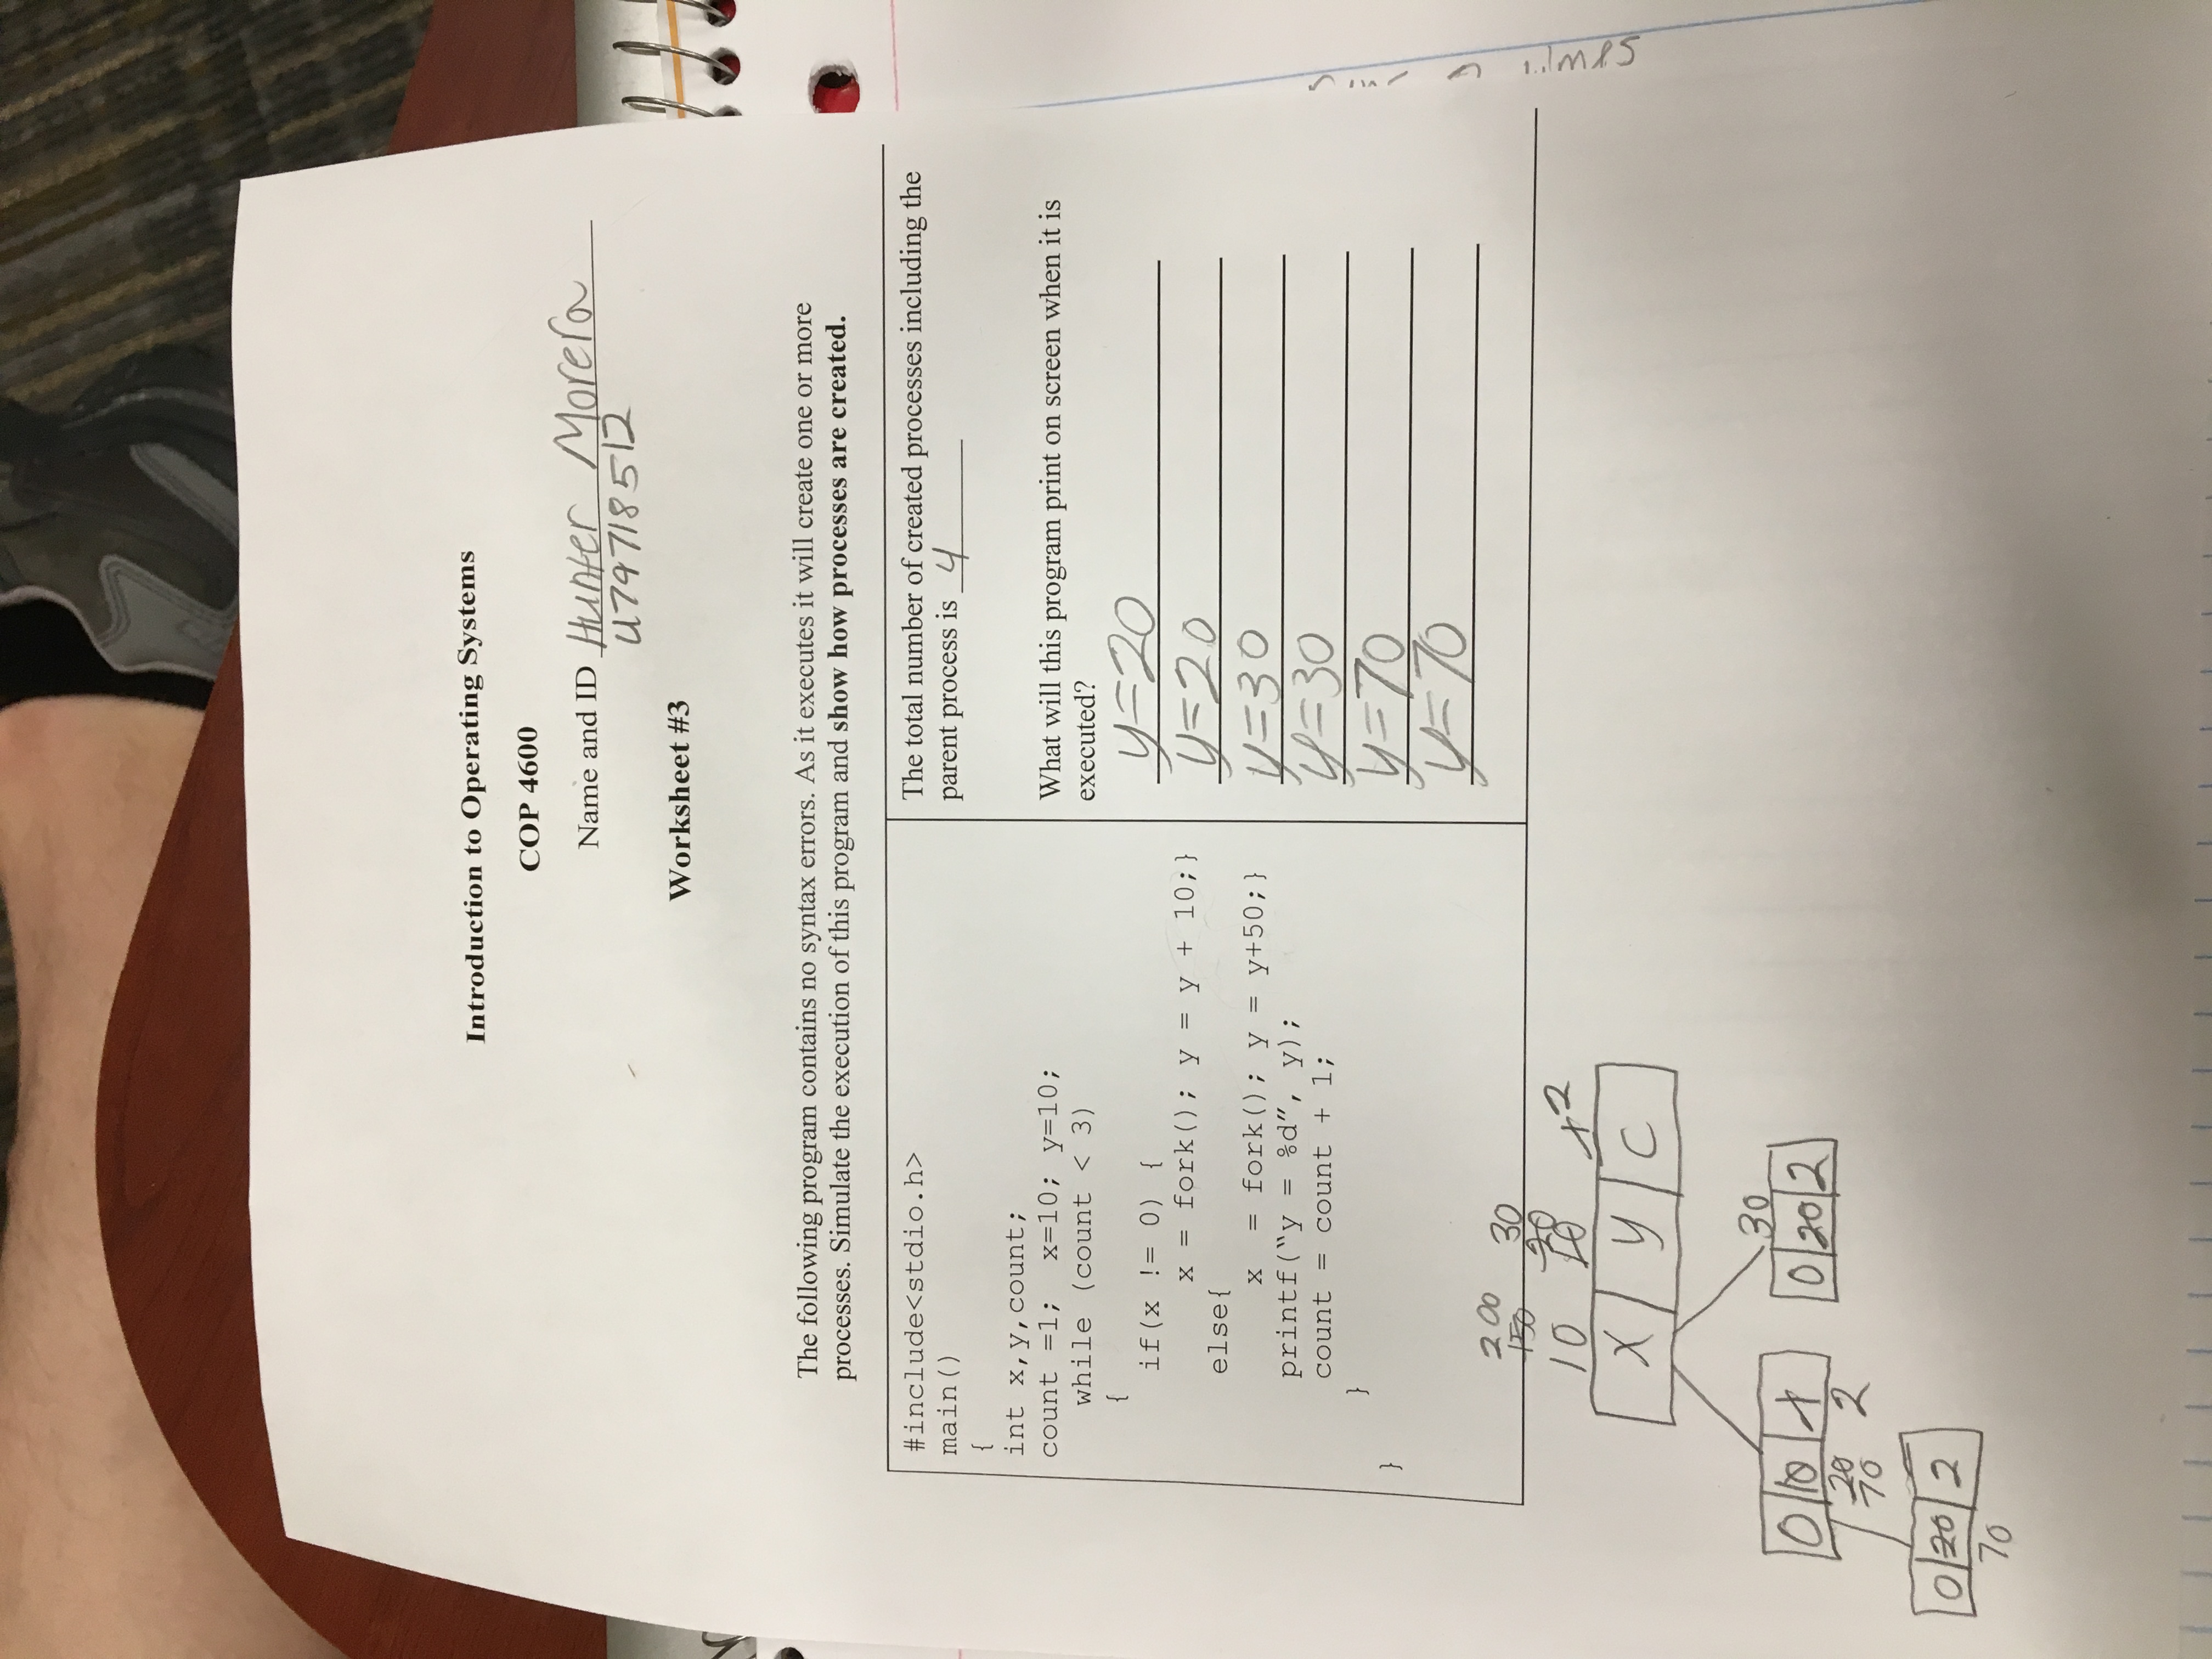 Introduction to Operating Systems
COP 4600
Name and ID Hunter Morera
U79718512
Worksheet #3
The following program contains no syntax errors. As it executes it will create one or more
processes. Simulate the execution of this program and show how processes are created.
#include<stdio.h>
main()
{
int x,y,count;
count =1; x=10; y=10;
while (count < 3)
{
if(x != 0) {
x = fork(); y = y + 10;}
else{
x = fork(); y = y+50;}
printf("y = %d", y);
count = count + 1;
}
}
The total number of created processes including the
parent process is 4
What will this program print on screen when it is
executed?
y=20
y=20
y=30
y=30
y=70
y=70
200 30
150 20
10 10 1 2
x y C
30
0 10 1 0 20 2
20 2
70
0 20 2
70